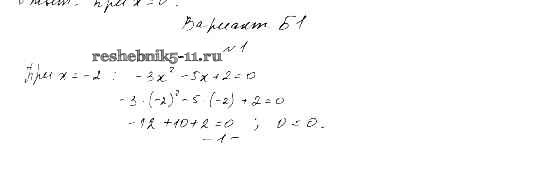 Ответ: при x = 0.
Вариант Б1
reshebnik5-11.ru
№1
При x = -2 : -3x² - 5x + 2 = 0
-3·(-2)² - 5·(-2) + 2 = 0
-12 + 10 + 2 = 0 ; 0 = 0.
- 1 -